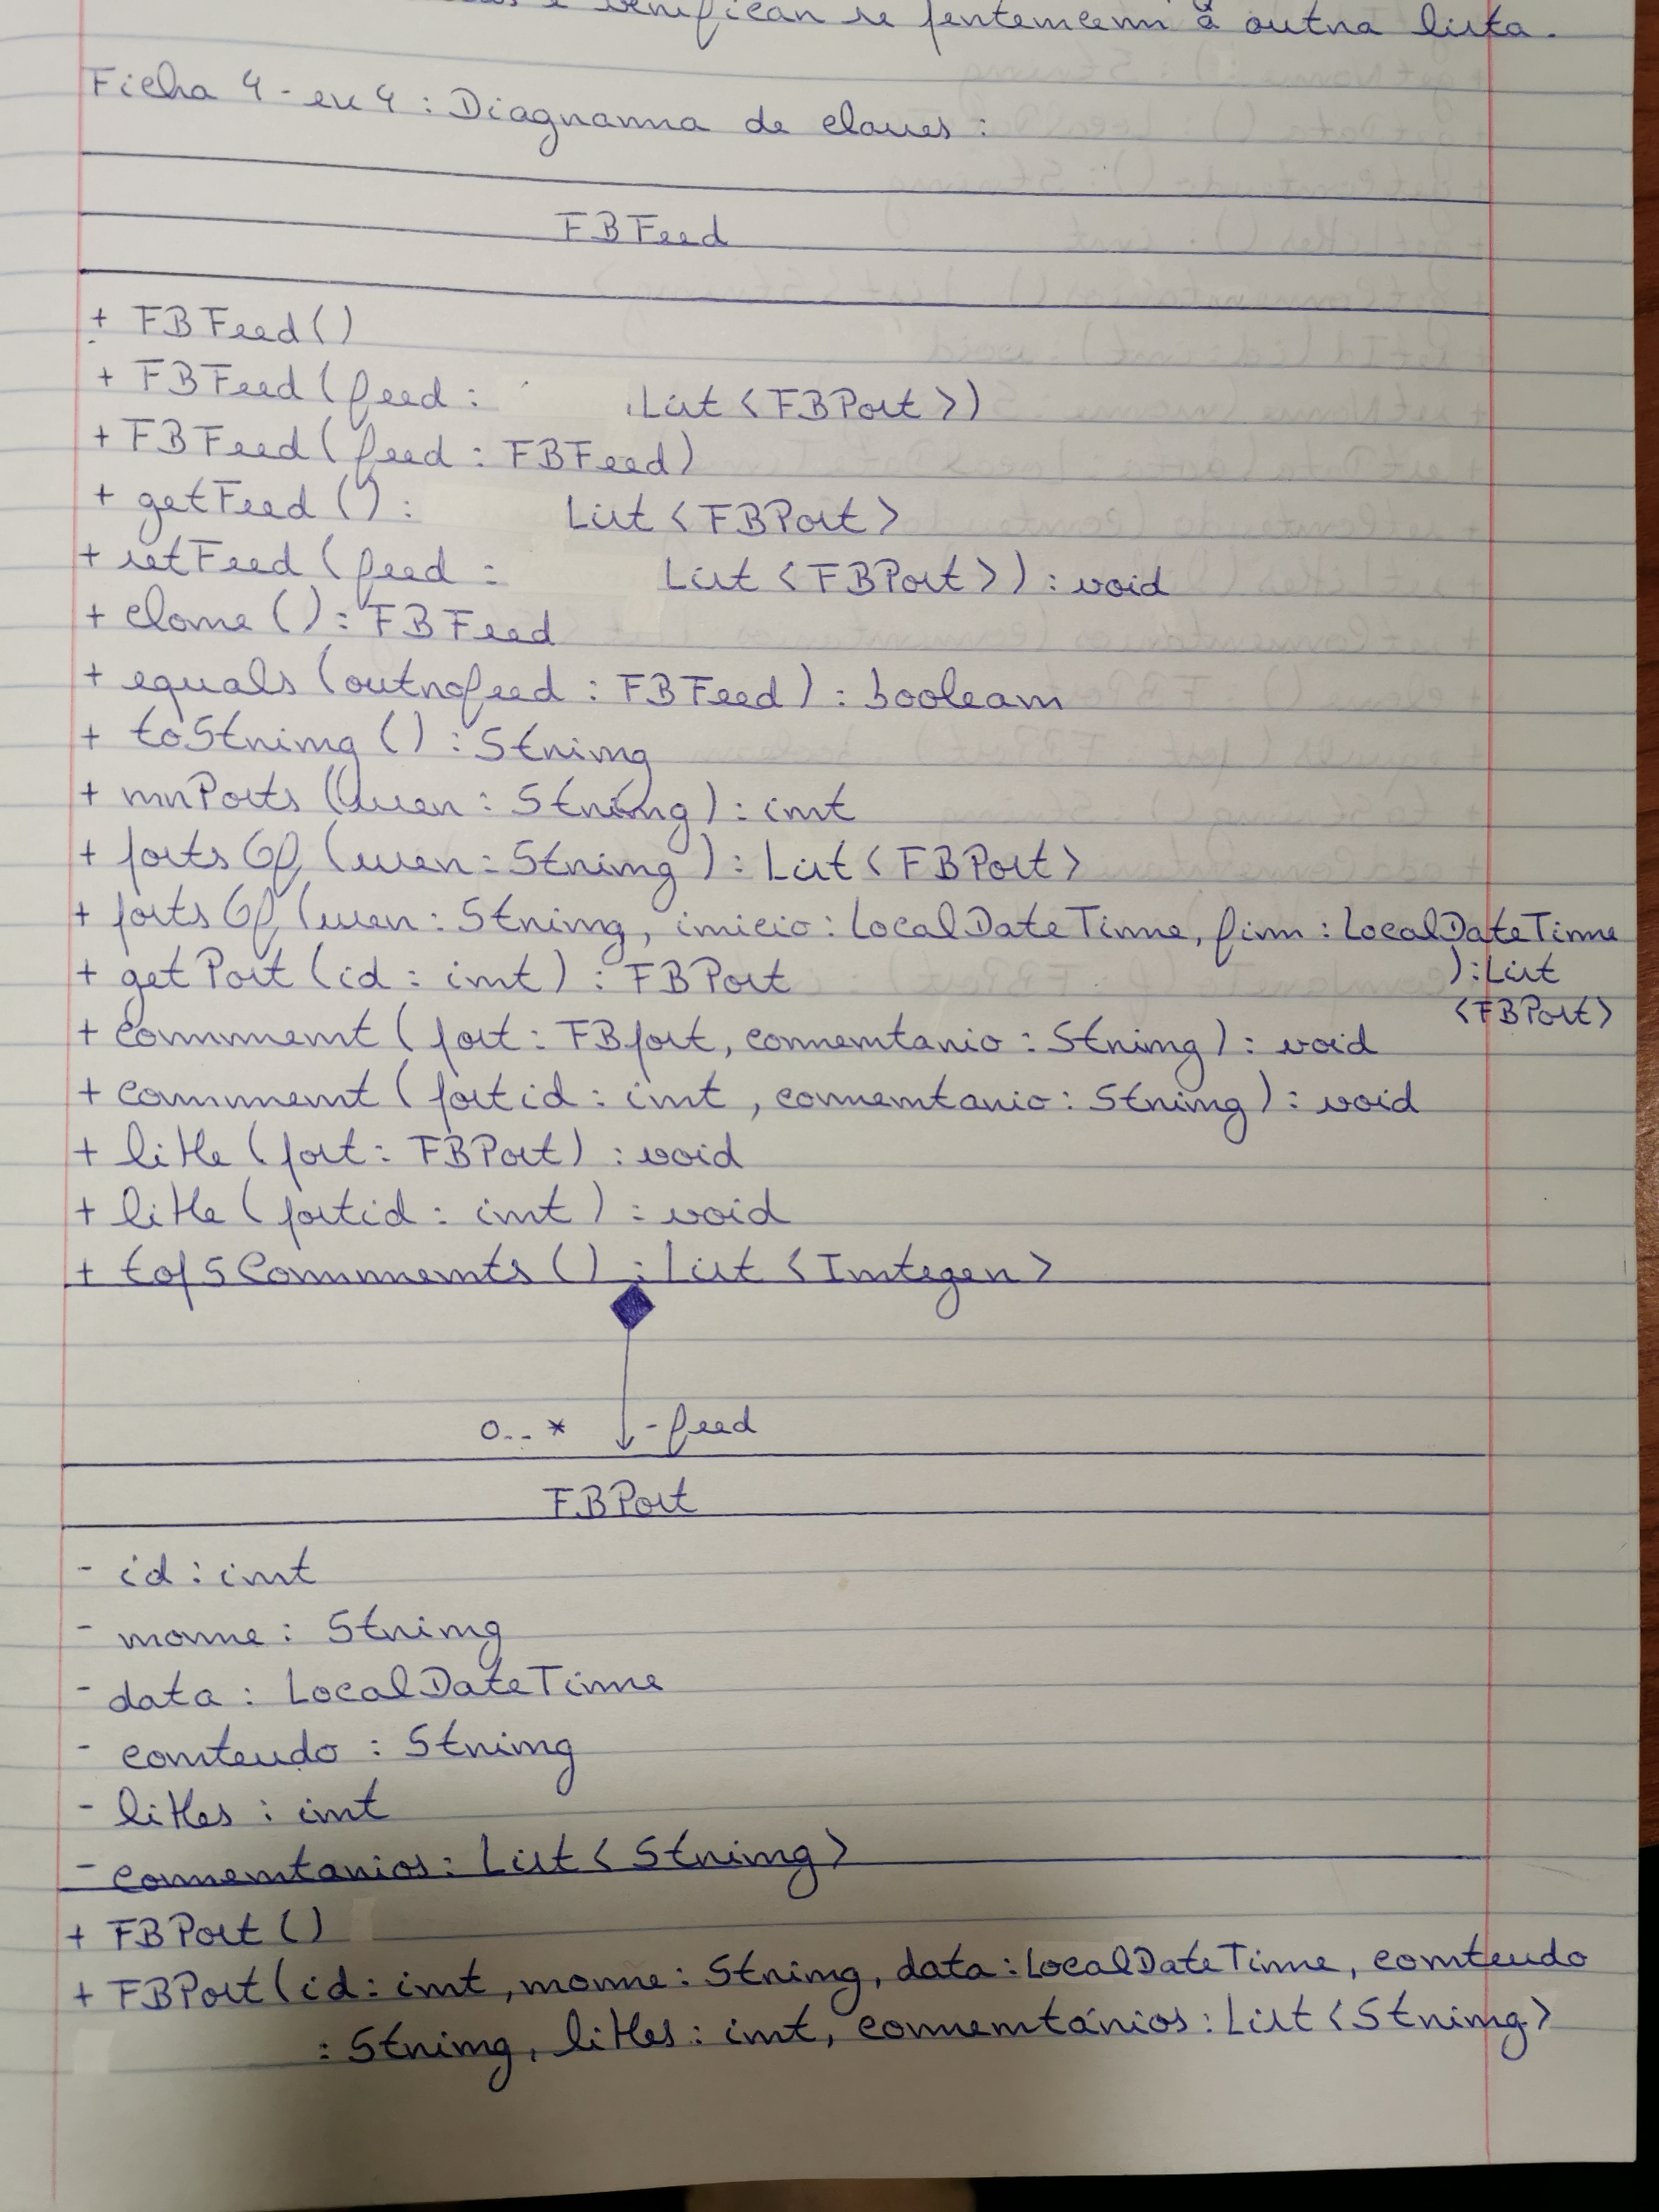 e verificar se pertencem à outra lista.
Ficha 4 - ex 4 : Diagrama de classes :
FBFeed
+ FBFeed()
+ FBFeed(feed : List<FBPost>)
+ FBFeed(feed : FBFeed)
+ getFeed() : List<FBPost>
+ setFeed(feed : List<FBPost>) : void
+ clone() : FBFeed
+ equals(outrofeed : FBFeed) : boolean
+ toString() : String
+ nrPosts(user : String) : int
+ postsOf(user : String) : List<FBPost>
+ postsOf(user : String, inicio : LocalDateTime, fim : LocalDateTime
) : List
+ getPost(id : int) : FBPost
<FBPost>
+ comment(post : FBpost, comentario : String) : void
+ comment(postid : int, comentario : String) : void
+ like(post : FBPost) : void
+ like(postid : int) : void
+ top5Comments() : List<Integer>
0..* - feed
FBPost
- id : int
- nome : String
- data : LocalDateTime
- conteudo : String
- likes : int
- comentarios : List<String>
+ FBPost()
+ FBPost(id : int, nome : String, data : LocalDateTime, conteudo
: String, likes : int, comentários : List<String>